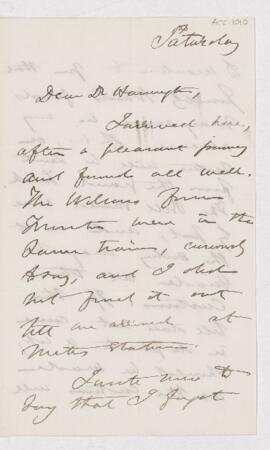 ACC-1010
Saturday
Dear Dr Harrington,
I arrived here,
after a pleasant journey
and found all well.
The Wilsons from
Toronto were in the
same train, curiously
to say, and I did
not find it out
till we arrived at
Metis Station.
I write now to
say that I forgot